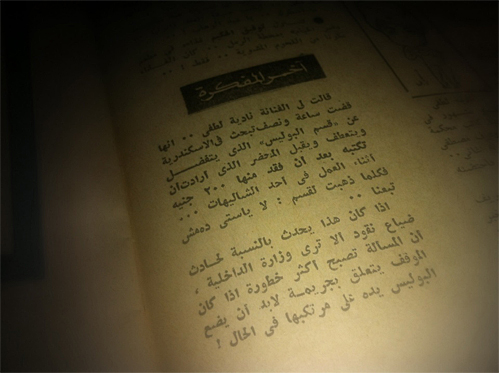 أخر المفكرة
قالت لى الفنانة نادية لطفى .. انها
قضت ساعة ونصف تبحث فى الاسكندرية
عن "قسم البوليس" الذى يتفضل
ويتعطف ويقبل المحضر الذى ارادت ان
تكتبه بعد أن فقد منها ٢٠٠ جنيه
اثناء العمل فى احد الشاليهات ...
فكلما ذهبت لقسم : لا ياستى دهمش
تبعنا ..
اذا كان هذا يحدث بالنسبة لحادث
ضياع نقود الا ترى وزارة الداخلية ،
ان المسالة تصبح اكثر خطورة اذا كان
الموقف يتعلق بجريمة لابد ان يضع
البوليس يده على مرتكبها فى الحال !